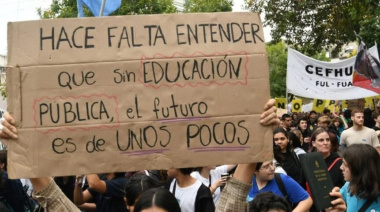 HACE FALTA ENTENDER
que sin EDUCACIÓN
PUBLICA, el futuro
es de UNOS POCOS
CEFHU
FUL - FUA